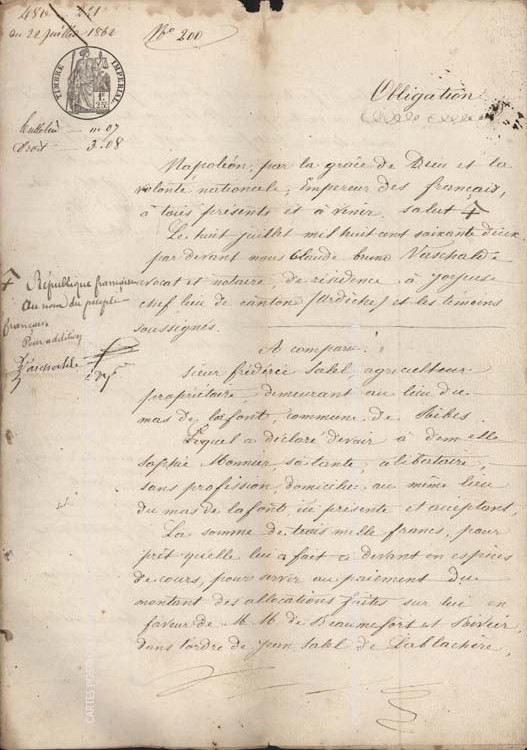 du 22 juillet 1862
No 200
TIMBRE IMPÉRIAL
1F 25c
Obligation
07
Droit — 3.08
Napoléon, par la grâce de Dieu et la
volonté nationale, Empereur des français,
à tous présents et à venir, salut
Le huit juillet mil huit cent soixante deux
par devant nous Claude bruno Vaschalde
avocat et notaire, de résidence à Joyeuse
chef lieu de canton (Ardèche) et les témoins
soussignés.
République française
Au nom du peuple
français
Pour addition
Vaschalde
A comparu:
sieur frédéric Sabel, agriculteur
propriétaire, demeurant au lieu du
mas de lafont, commune de Ribes
Lequel a déclaré devoir à demelle
Sophie Monnier, célibataire,
sans profession, domiciliée au même lieu
du mas de lafont, ici présente et acceptant,
La somme de trois mille francs, pour
prêt qu'elle lui a fait ci devant en espèces
de cours, pour servir au paiement du
montant des allocations faites sur lui en
faveur de M. M. de Beaumefort et
dans l'ordre de Jean Sabel de Lablachère,
CARTES POST